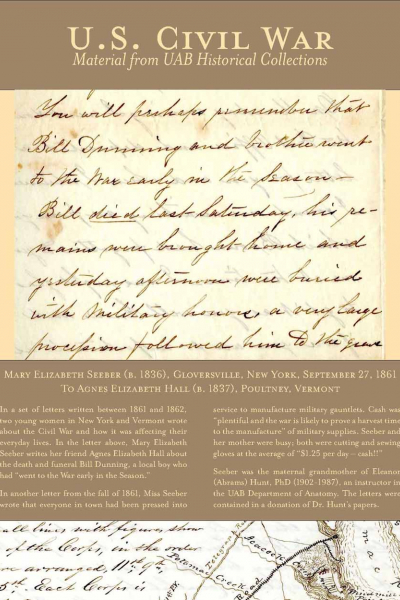 U.S. Civil War
Material from UAB Historical Collections
You will perhaps remember that
Bill Dunning and brother went
to the War early in the Season —
Bill died last Saturday, his re-
mains were brought home and
yesterday afternoon were buried
with Military honors, a very large
procession followed him to the grave
Mary Elizabeth Seeber (b. 1836), Gloversville, New York, September 27, 1861
To Agnes Elizabeth Hall (b. 1837), Poultney, Vermont
In a set of letters written between 1861 and 1862,
two young women in New York and Vermont wrote
about the Civil War and how it was affecting their
everyday lives. In the letter above, Mary Elizabeth
Seeber writes her friend Agnes Elizabeth Hall about
the death and funeral Bill Dunning, a local boy who
had "went to the War early in the Season."
In another letter from the fall of 1861, Miss Seeber
wrote that everyone in town had been pressed into
service to manufacture military gauntlets. Cash was
"plentiful and the war is likely to prove a harvest time
to the manufacture" of military supplies. Seeber and
her mother were busy; both were cutting and sewing
gloves at the average of "$1.25 per day – cash!!"
Seeber was the maternal grandmother of Eleanor
(Abrams) Hunt, PhD (1902-1987), an instructor in
the UAB Department of Anatomy. The letters were
contained in a donation of Dr. Hunt's papers.
all lines with figures show
of the Corps, in the order
were arranged, 11th, 9th
5th. Each Corps is
Potomac
Telegraph Road
Peacock
Creek